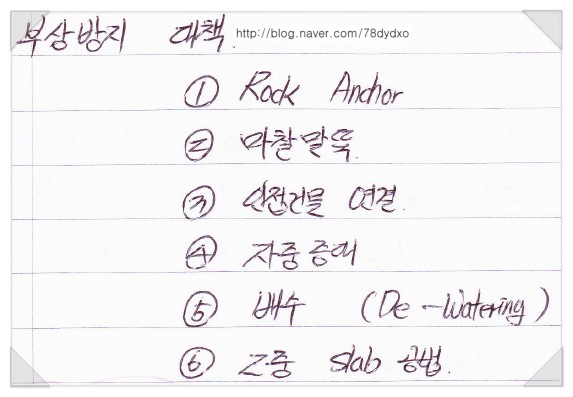 부상방지 대책. http://blog.naver.com/78dydxo
① Rock Anchor
② 마찰말뚝.
③ 인접건물 연결.
④ 자중증대
⑤ 배수 (De-Watering)
⑥ 2중 Slab 공법.